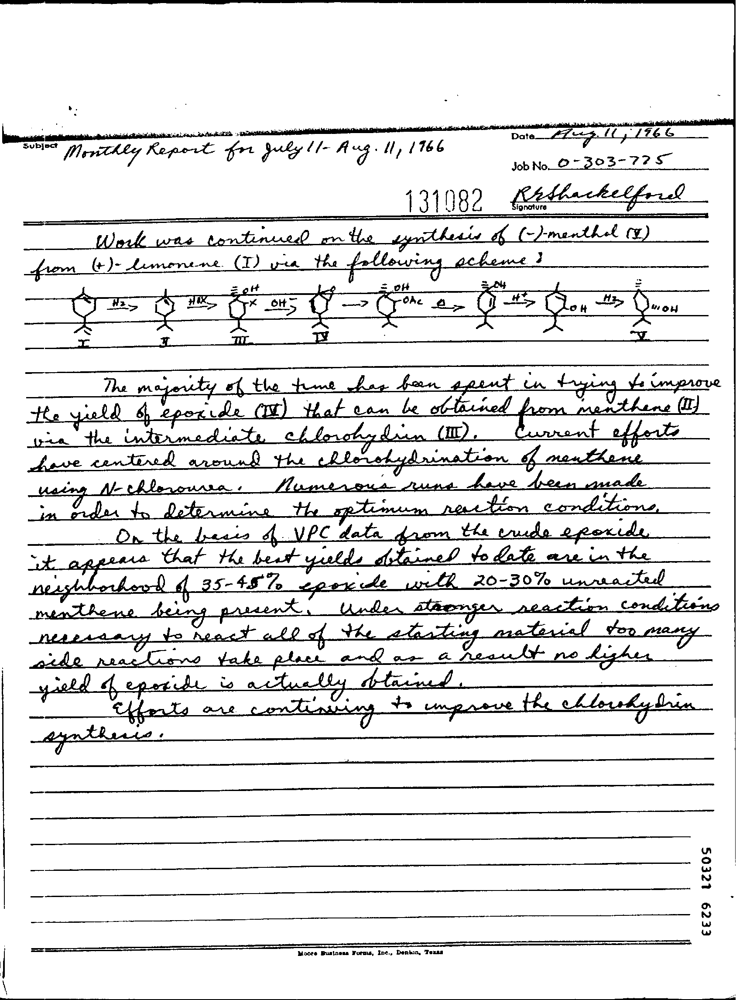 Date Aug. 11, 1966
Subject Monthly Report for July 11 - Aug. 11, 1966
Job No. 0-303-775
131082 RRShackelford
Signature
Work was continued on the synthesis of (-)-menthol (V)
from (+)-limonene (I) via the following scheme:
H2 HOX OH X OH- OH OAc Δ OH H+ OH H2 OH
I II III IV V
The majority of the time has been spent in trying to improve
the yield of epoxide (IV) that can be obtained from menthene (II)
via the intermediate chlorohydrin (III). Current efforts
have centered around the chlorohydrination of menthene
using N-chlorourea. Numerous runs have been made
in order to determine the optimum reaction conditions.
On the basis of VPC data from the crude epoxide
it appears that the best yields obtained to date are in the
neighborhood of 35-45% epoxide with 20-30% unreacted
menthene being present. Under stronger reaction conditions
necessary to react all of the starting material too many
side reactions take place and as a result no higher
yield of epoxide is actually obtained.
Efforts are continuing to improve the chlorohydrin
synthesis.
50321 6233
Moore Business Forms, Inc., Denton, Texas